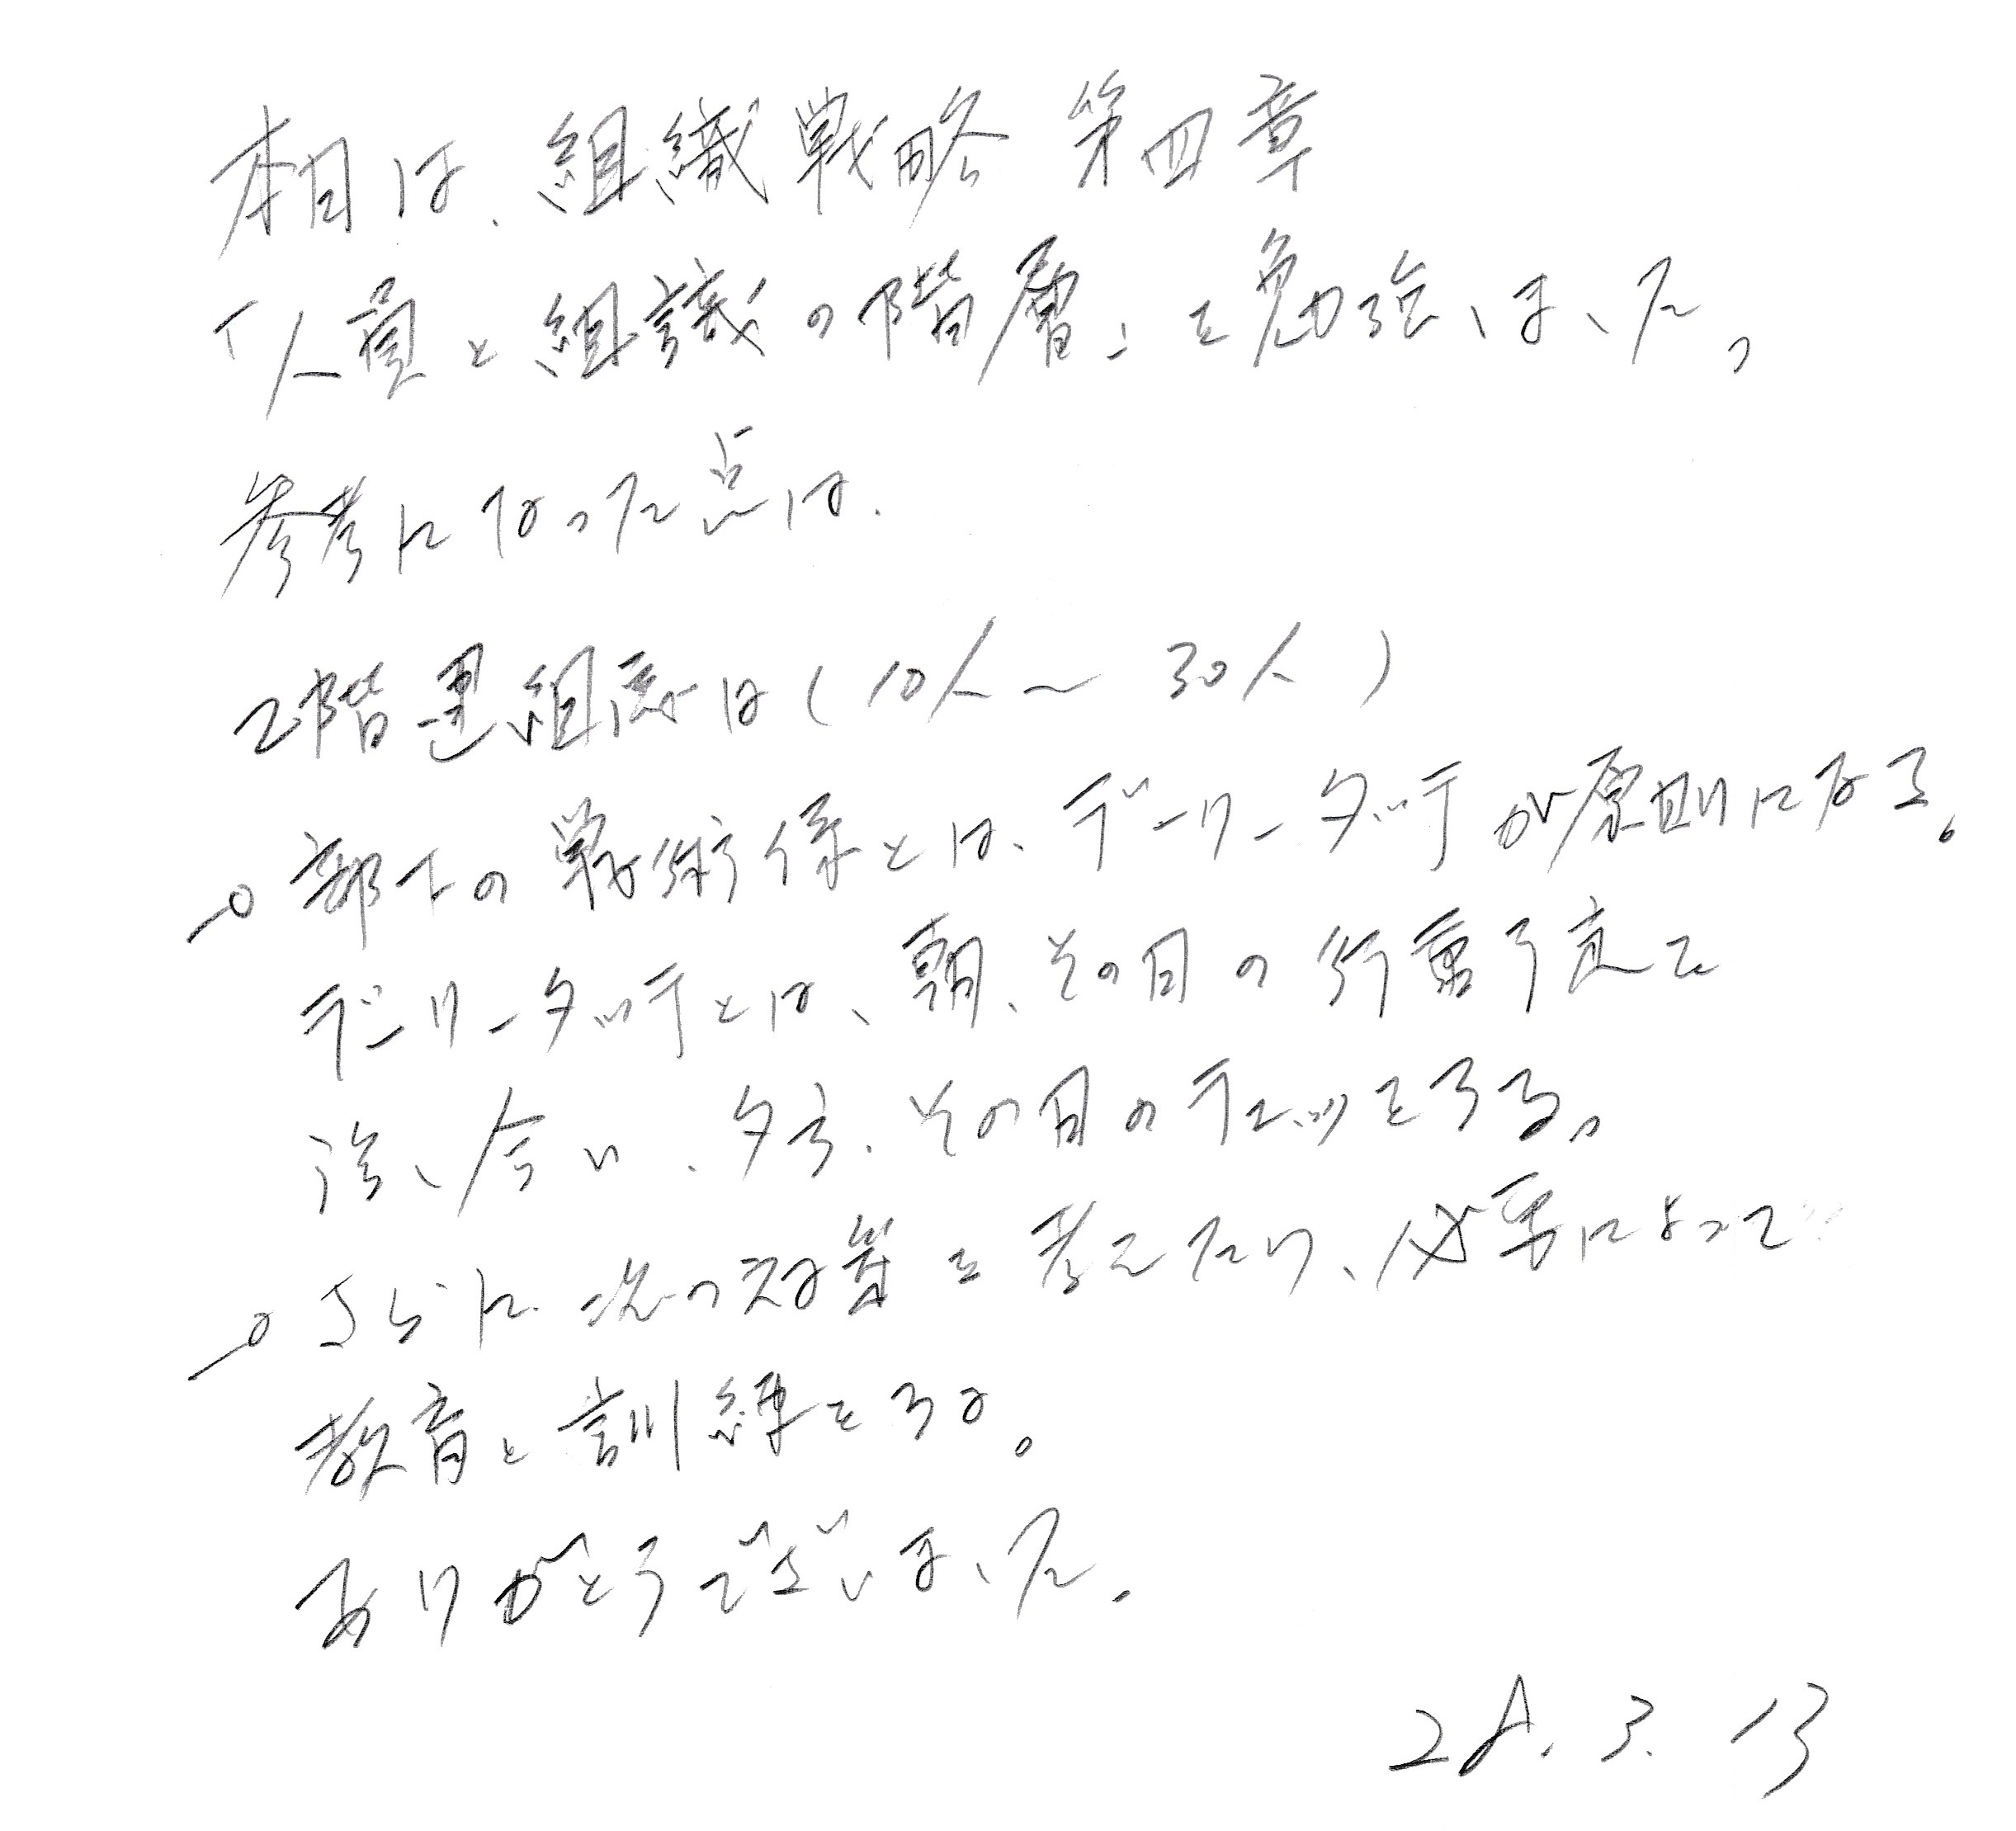 本日は、組織戦略 第四章
「人員と組織の階層」を勉強しました。
参考になった点は、
2階建組織は(10人〜30人)
部下の戦術係とは、デーリータッチが原則になる。
デーリータッチとは、朝、その日の行動予定で
話し合い、夕方、その日のチェックをする。
さらに次の対策を考えたり、必要によって
教育と訓練をする。
ありがとうございました。
28.3.13